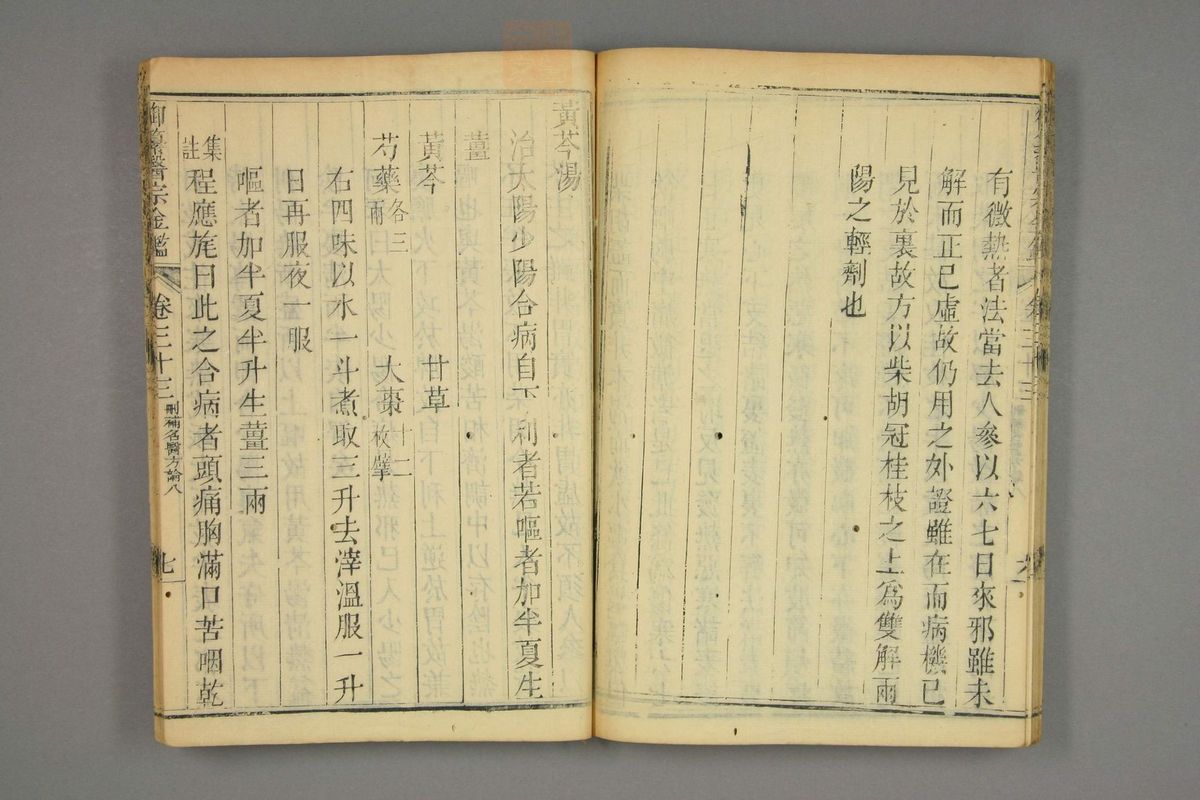 有微熱者法當去人參以六七日來邪雖未
解而正已虛故仍用之外證雖在而病機已
見於裏故方以柴胡冠桂枝之上為雙解兩
陽之輕劑也
黃芩湯
治太陽少陽合病自下利者若嘔者加半夏生
薑
黃芩 甘草
芍藥各三兩 大棗十二枚擘
右四味以水一斗煮取三升去滓溫服一升
日再服夜一服
嘔者加半夏半升生薑三兩
集註程應旄曰此之合病者頭痛胸滿口苦咽乾
御纂醫宗金鑑 卷三十三 刪補名醫方論八 七